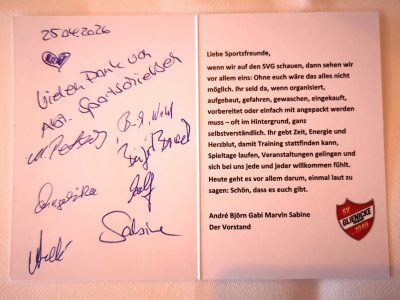 25.04.2026
Vielen Dank von
Abt. Sportschießen
Angelika
Ralf
André
Sabine
Liebe Sportsfreunde,
wenn wir auf den SVG schauen, dann sehen wir
vor allem eins: Ohne euch wäre das alles nicht
möglich. Ihr seid da, wenn organisiert,
aufgebaut, gefahren, gewaschen, eingekauft,
vorbereitet oder einfach mit angepackt werden
muss – oft im Hintergrund, ganz
selbstverständlich. Ihr gebt Zeit, Energie und
Herzblut, damit Training stattfinden kann,
Spieltage laufen, Veranstaltungen gelingen und
sich bei uns jede und jeder willkommen fühlt.
Heute geht es vor allem darum, einmal laut zu
sagen: Schön, dass es euch gibt.
André Björn Gabi Marvin Sabine
Der Vorstand
SV
GLIENICKE
1919